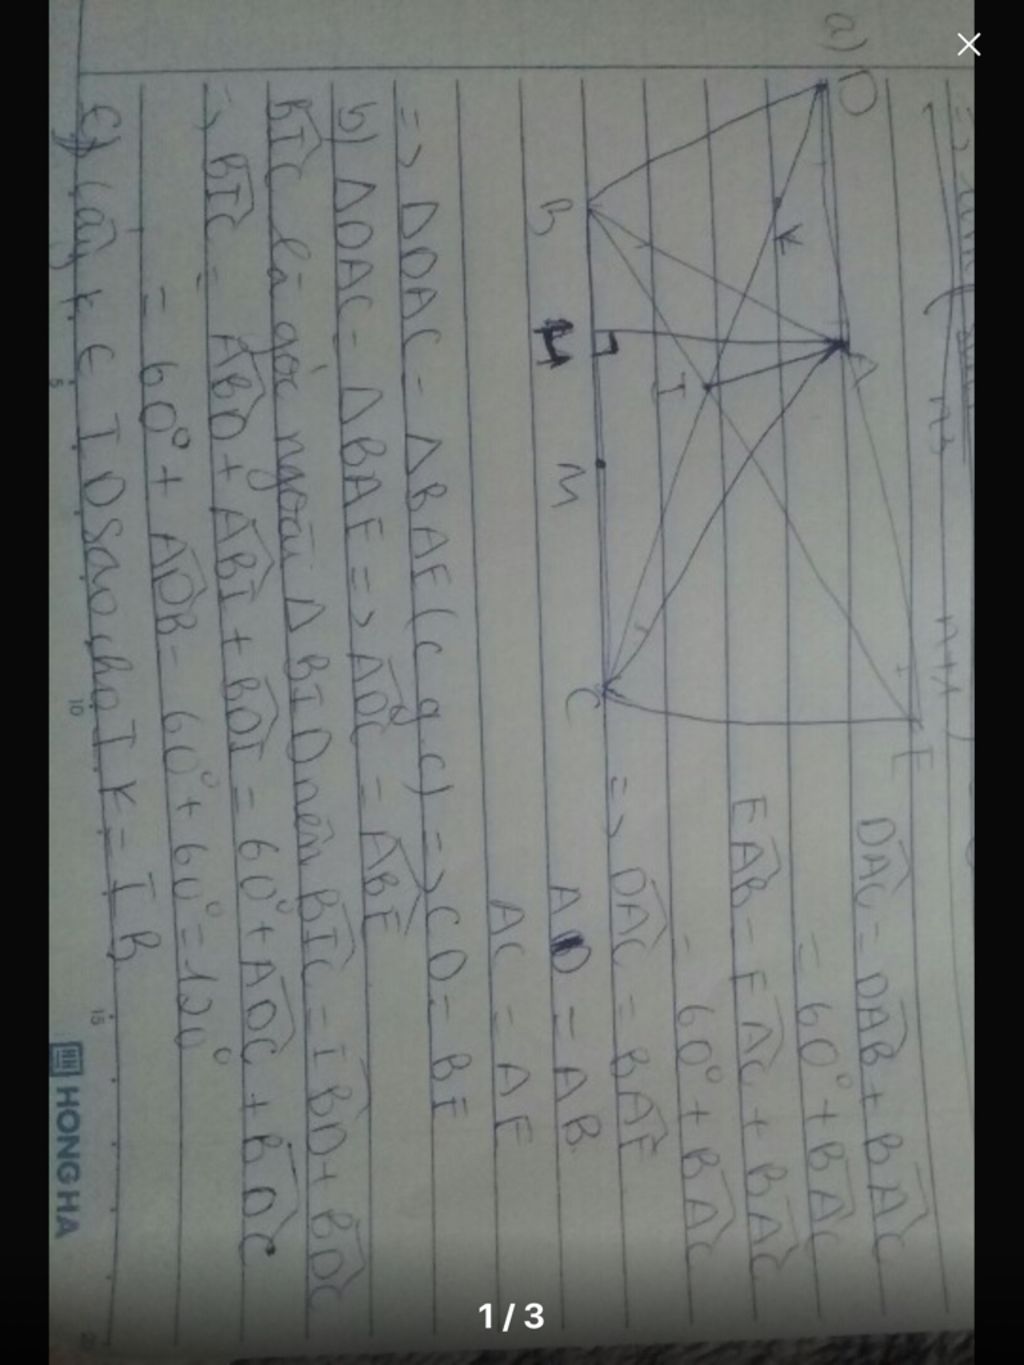 a)
D
A
E
K
I
B
H
M
C
DAC = DAB + BAC
= 60° + BAC
FAB = FAC + BAC
= 60° + BAC
=> DAC = BAF
AD = AB
AC = AF
=> ΔDAC = ΔBAF (c g c) => CD = BF
b) ΔDAC = ΔBAF => ADC = ABF
BIC là góc ngoài Δ BID nên BIC = IBD + BDC
=> BIC = ABD + ABI + BDI = 60° + ADC + BDC
= 60° + ADB = 60° + 60° = 120°
c) Lấy K ∈ ID sao cho IK = IB
5 10 15 20
HONG HA
1 / 3